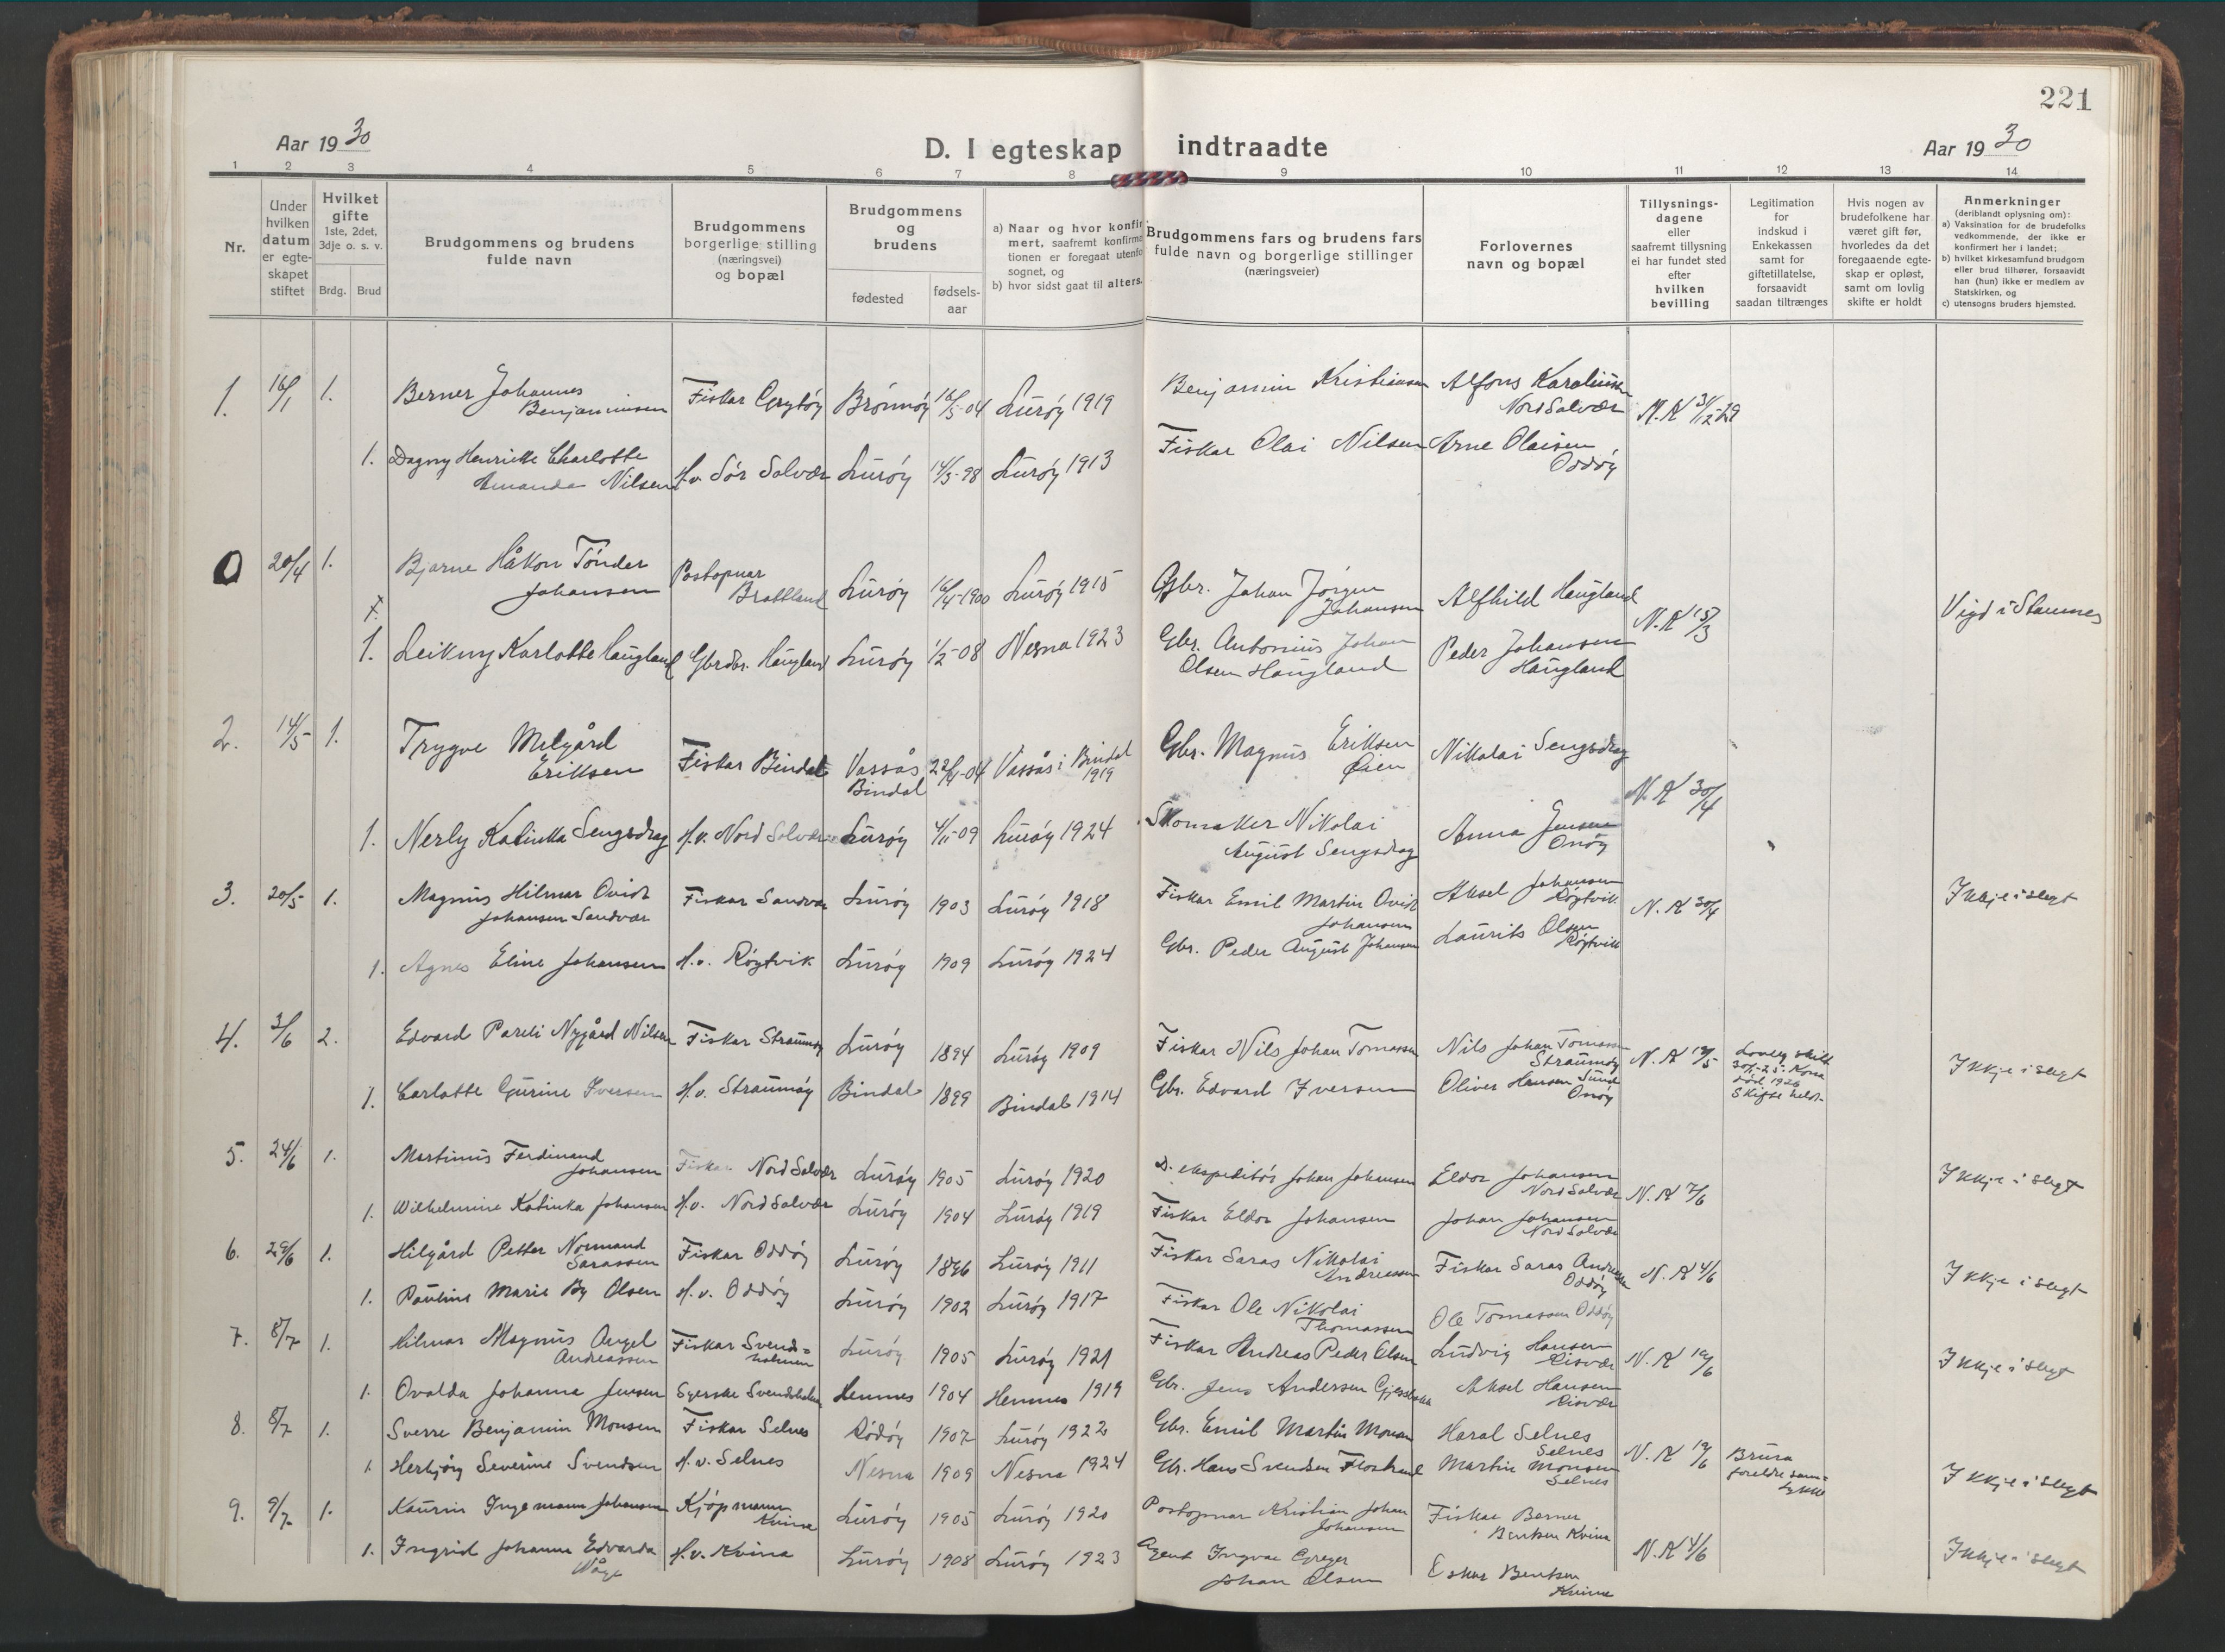 221
Aar 1930
D. I egteskap indtraadte
Aar 1930
1 2 3 4 5 6 7 8 9 10 11 12 13 14
Nr.
Under
hvilken
datum
er egte-
skapet
stiftet
Hvilket
gifte
1ste, 2det,
3dje o. s. v.
Brdg. Brud
Brudgommens og brudens
fulde navn
Brudgommens
borgerlige stilling
(næringsvei)
og bopæl
Brudgommens
og
brudens
fødested
fødsels-
aar
a) Naar og hvor konfir
mert, saafremt konfirma
tionen er foregaat utenfo
sognet, og
b) hvor sidst gaat til alters.
Brudgommens fars og brudens fars
fulde navn og borgerlige stillinger
(næringsveier)
Forlovernes
navn og bopæl
Tillysnings-
dagene
eller
saafremt tillysning
ei har fundet sted
efter
hvilken
bevilling
Legitimation
for
indskud i
Enkekassen
samt for
giftetillatelse,
forsaavidt
saadan tiltrænges
Hvis nogen av
brudefolkene har
været gift før,
hvorledes da det
foregaaende egte-
skap er opløst,
samt om lovlig
skifte er holdt
Anmerkninger
(deriblandt oplysning om):
a) Vaksination for de brudefolks
vedkommende, der ikke er
konfirmert her i landet;
b) hvilket kirkesamfund brudgom
eller brud tilhører, forsaavidt
han (hun) ikke er medlem av
Statskirken, og
c) utensogns bruders hjemsted.
1. 16/1 1. Berner Johannes
Benjaminsen
Fiskar Grytøy Brønnøy 16/5-04 Lurøy 1919
Benjamin Kristiansen
Alfons Karoliussen
Nord Solvær
N.K 31/12-29
1. Dagny Henrikke Charlotte
Amanda Nilsen
H.v Sør Solvær Lurøy 14/3-98 Lurøy 1913
Fiskar Olai Nilsen
Arne Olaisen
Oddøy
0 20/4 1. Bjarne Håkon Tønder
Johansen
Postopnar
Brattland
Lurøy 16/4-1900 Lurøy 1915
Gbr. Johan Jørgen
Johansen
Alfhild Haugland
N.K 15/3
Vigd i Stamnes
1. Leikny Karlotte Haugland Gbrdtr. Haugland Lurøy 1/2-08 Nesna 1923
Gbr. Antonius Johan
Olsen Haugland
Peder Johansen
Haugland
2. 14/5 1. Trygve Melgård
Eriksen
Fiskar Bindal Vassås
Bindal
22/4-04 Vassås i Bindal
1919
Gbr. Magnus Eriksen
Øien
Nikolai Sengsdrag
N.K 30/4
1. Nerly Katinka Sengsdrag H.v. Nord Solvær Lurøy 4/11-09 Lurøy 1924
Skomaker Nikolai
August Sengsdrag
Anna Jensen
Onøy
3. 20/5 1. Magnus Hilmar Ovidt
Johansen Sandvær
Fiskar Sandvær Lurøy 1903 Lurøy 1918
Fiskar Emil Martin Ovidt
Johansen
Aksel Johansen
Røytvik
N.K 30/4
Ikkje i slegt
1. Agnes Eline Johansen H.v. Røytvik Lurøy 1909 Lurøy 1924
Gbr. Peder August Johansen
Laurits Olsen
Røytvik
4. 3/6 2. Edvard Pareli Nygård Nilsen Fiskar Straumøy Lurøy 1894 Lurøy 1909
Fiskar Nils Johan Tomassen
Nils Johan Tomassen
Straumøy
N.K 19/5
Lovleg skilt
Kona
død 1926
Skifte heldt
Ikkje i slegt
1. Carlotte Gurine Iversen H.v. Straumøy Bindal 1899 Bindal 1914
Gbr. Edvard Iversen
Oliver Hansen Sund
Onøy
5. 24/6 1. Martinus Ferdinand
Johansen
Fiskar Nord Solvær Lurøy 1905 Lurøy 1920
D. ekspeditør Johan Johansen
Eldor Johansen
Nord Solvær
N.K 7/6
Ikkje i slegt
1. Wilhelmine Katinka Johansen H.v. Nord Solvær Lurøy 1904 Lurøy 1919
Fiskar Eldor Johansen
Johan Johansen
Nord Solvær
6. 29/6 1. Hilgård Petter Normand
Sarassen
Fiskar Oddøy Lurøy 1896 Lurøy 1911
Fiskar Saras Nikolai
Andreassen
Fiskar Saras Andreassen
Oddøy
N.K 4/6
Ikkje i slegt
1. Pauline Marie By Olsen H.v. Oddøy Lurøy 1902 Lurøy 1917
Fiskar Ole Nikolai
Thomassen
Ole Tomassen Oddøy
7. 8/7 1. Hilmar Magnus Angel
Andreassen
Fiskar Svends=
holmen
Lurøy 1905 Lurøy 1921
Fiskar Andreas Peder Olsen
Ludvig Hansen
Risvær
N.K 19/6
Ikkje i slegt
1. Ovalda Johanna Jensen Syerske Svendsholmen Hemnes 1904 Hemnes 1919
Gbr. Jens Andersen
Aksel Hansen
Risvær
8. 8/7 1. Sverre Benjamin Monsen Fiskar Selnes Rødøy 1907 Lurøy 1922
Gbr. Emil Martin Monsen
Haral Selnes
Selnes
N.K 19/6
Brura
foreldre sam=
tykke
Ikkje i slegt
1. Herbjørg Severine Svendsen H.v. Selnes Nesna 1909 Nesna 1924
Gbr. Hans Svendsen Flostrand
Martin Monsen
Selnes
9. 9/7 1. Kaurin Ingemann Johansen Kjøpmann
Kvina
Lurøy 1905 Lurøy 1920
Postopnar Kristian Johan
Johansen
Fiskar Berner
Bentsen Kvina
N.K 4/6
Ikkje i slegt
1. Ingrid Johanna Edvarda
Våge
H.v. Kvina Lurøy 1908 Lurøy 1923
Agent Ingvar Greger
Johan Olsen
Eskar Bentsen
Kvina